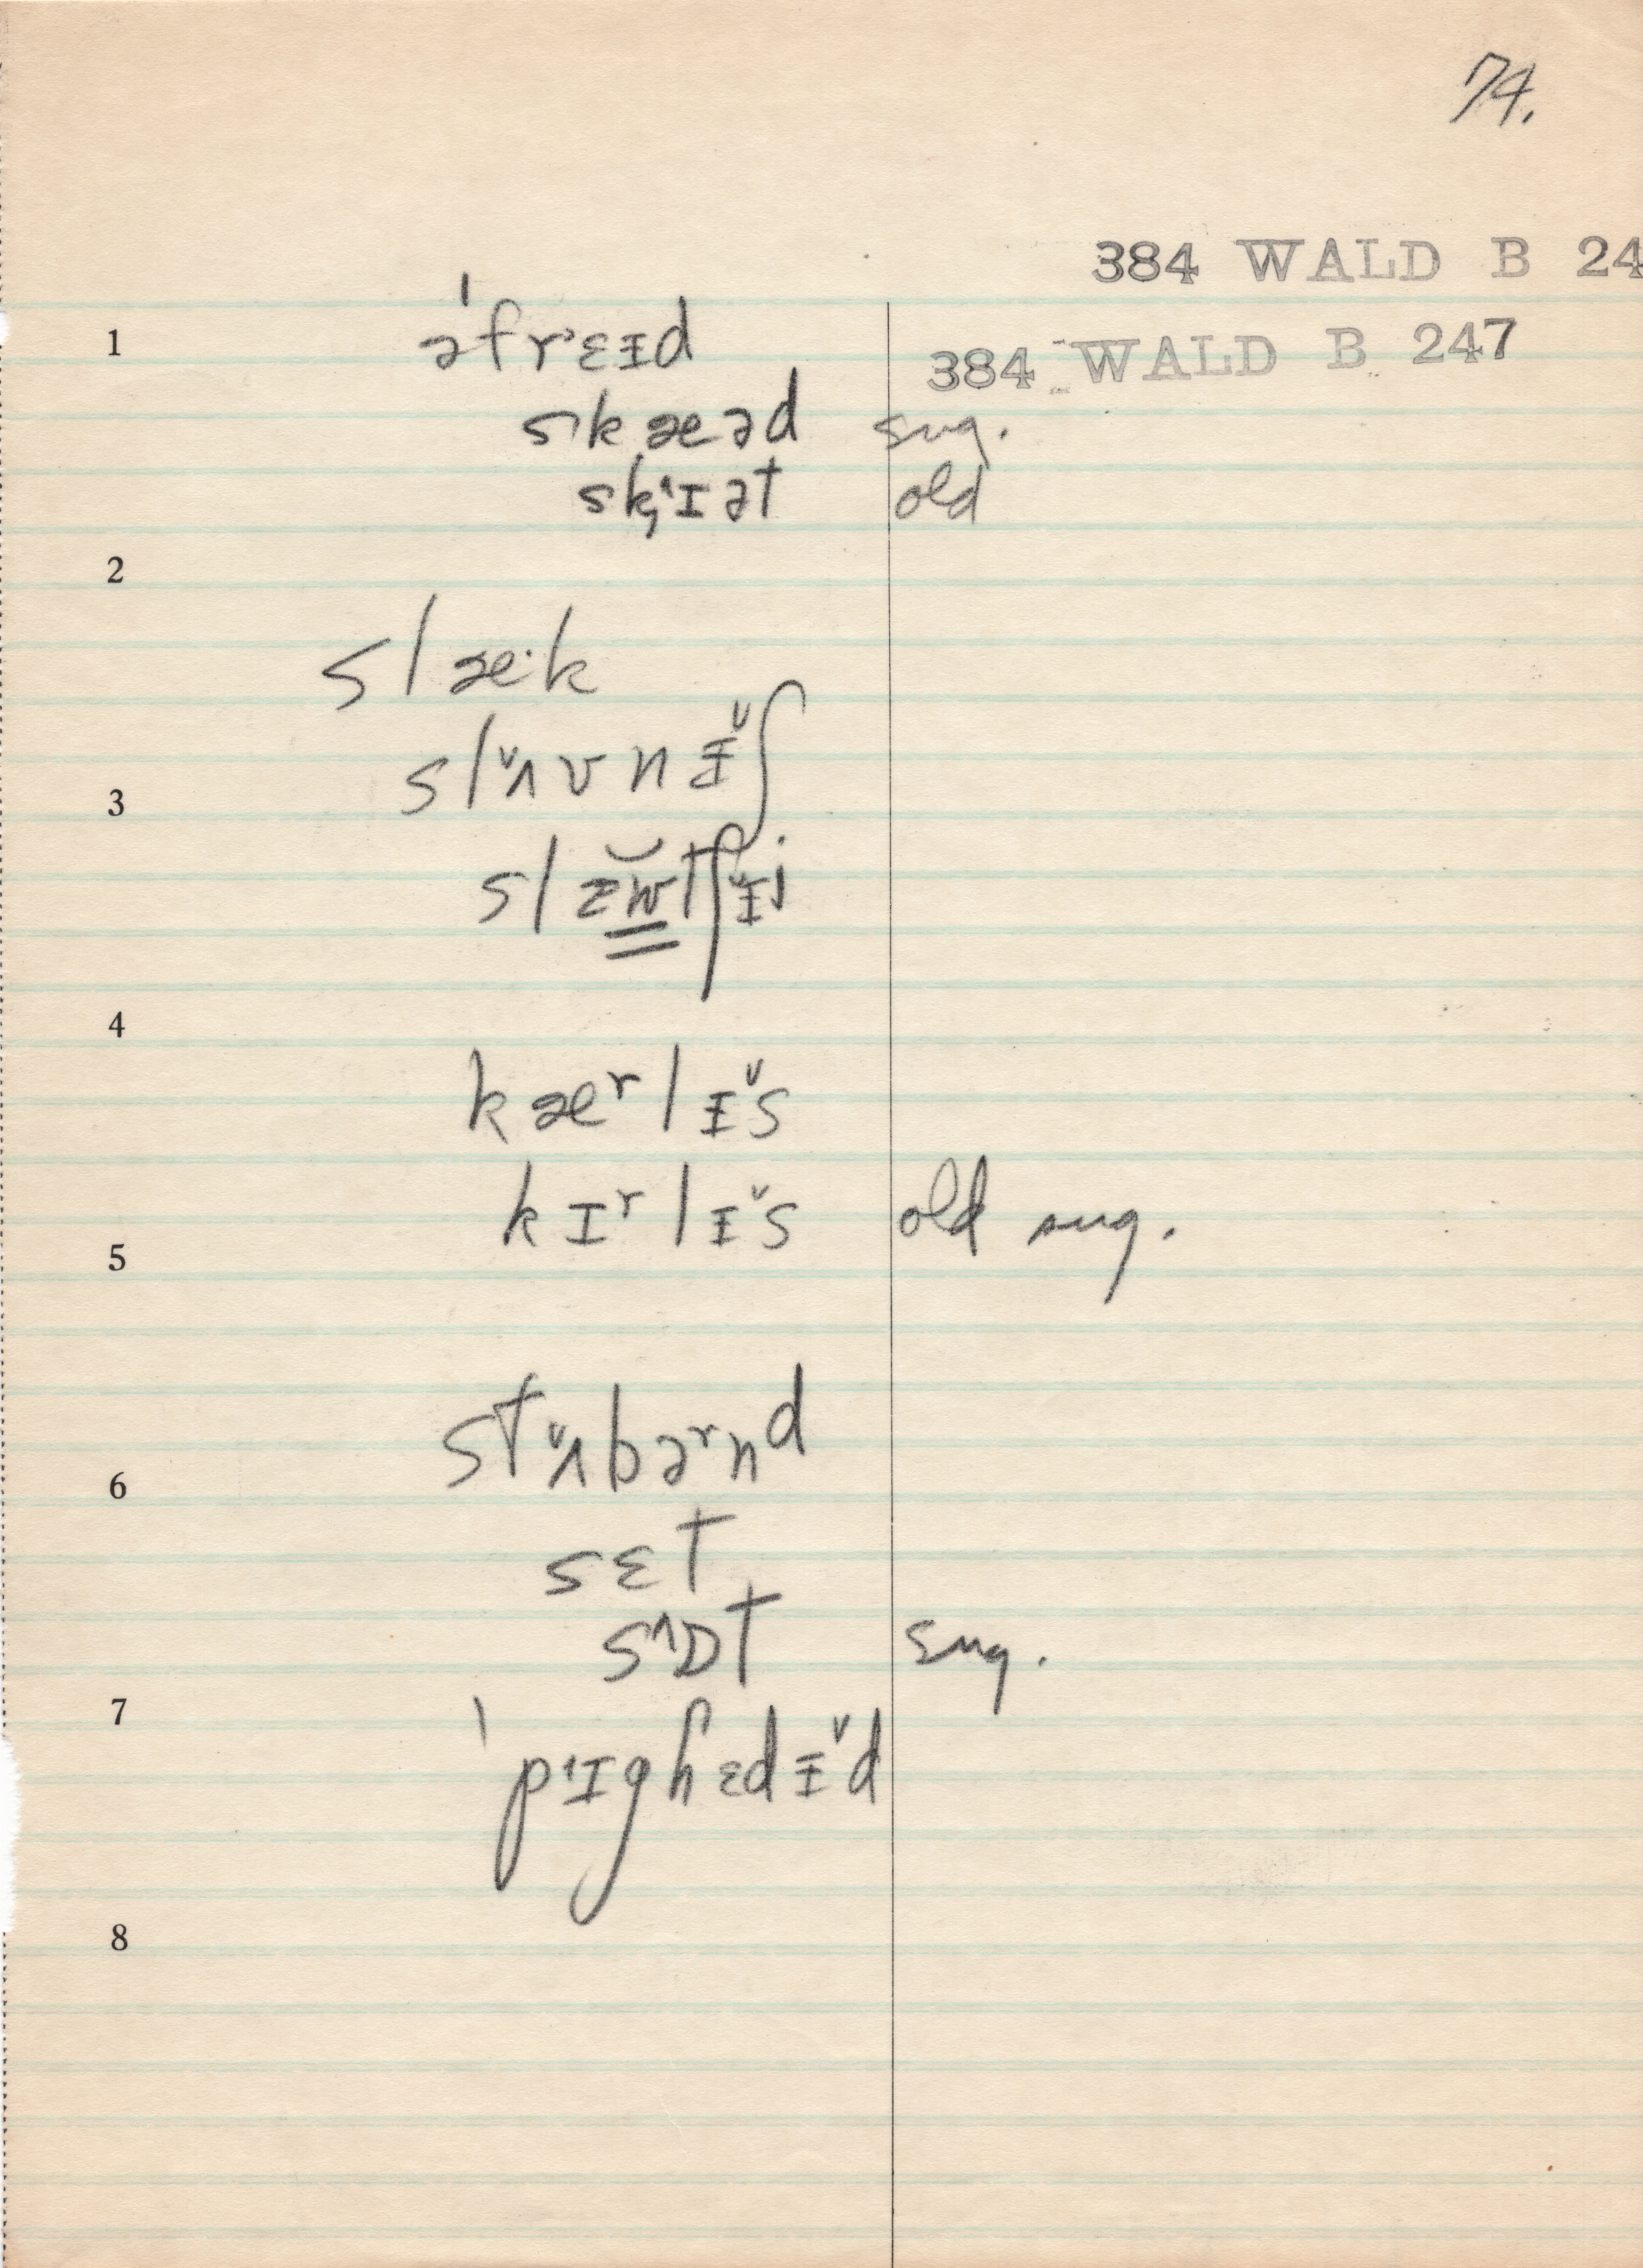 74.
384 WALD B 24
384 WALD B 247
1
əˈfrɛɪ̵d
skæəd sug.
sk̡ɪət old
2
slæ·k
slʌ̆vnɪ̵̆ʃ
3
slɪ̵w̆tʃɪ̵̆j
4
kæʳlɪ̵̆s
kɪʳlɪ̵̆s old sug.
5
stʌ̆bəʳnd
6
sɛt
sɒ̂t sug.
7
ˈpɪghɛdɪ̵̆d
8